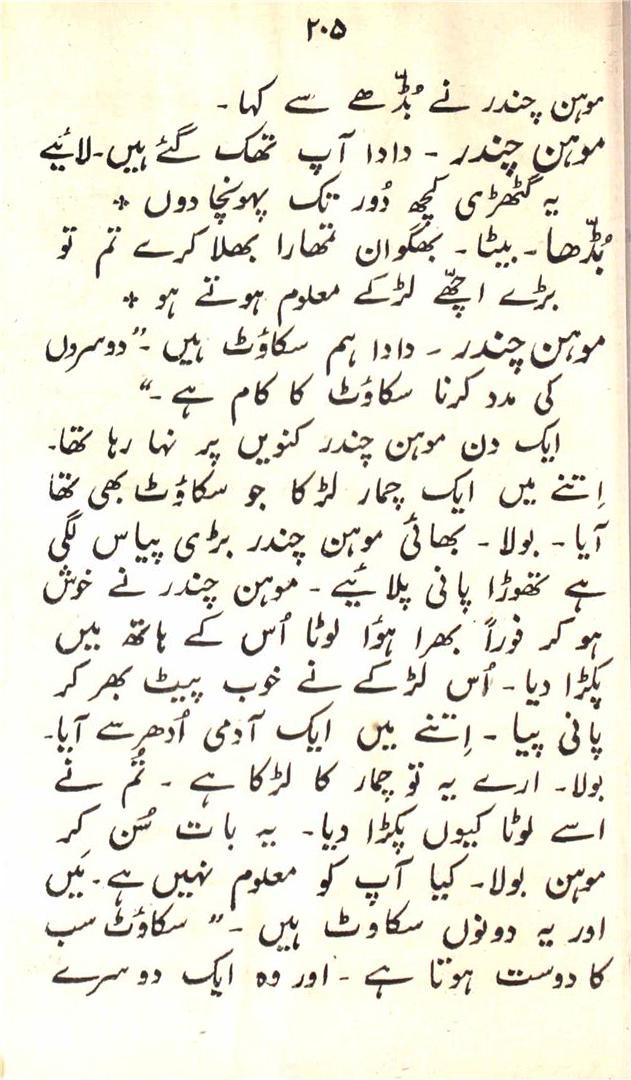 ۲۰۵
موہن چندر نے بُڈّھے سے کہا ۔
موہن چندر ۔ دادا آپ تھک گئے ہیں۔ لائیے
یہ گٹھڑی کچھ دُور تک پہونچا دوں *
بُڈّھا ۔ بیٹا ۔ بھگوان تمھارا بھلا کرے تم تو
بڑے اچّھے لڑکے معلوم ہوتے ہو *
موہن چندر ۔ دادا ہم سکاؤٹ ہیں ۔ ”دوسروں
کی مدد کرنا سکاؤٹ کا کام ہے ۔“
ایک دن موہن چندر کنویں پر نہا رہا تھا۔
اِتنے میں ایک چمار لڑکا جو سکاؤٹ بھی تھا
آیا ۔ بولا ۔ بھائی موہن چندر بڑی پیاس لگی
ہے تھوڑا پانی پلائیے ۔ موہن چندر نے خوش
ہو کر فوراً بھرا ہؤا لوٹا اُس کے ہاتھ میں
پکڑا دیا ۔ اُس لڑکے نے خوب پیٹ بھر کر
پانی پیا ۔ اِتنے میں ایک آدمی اُدھر سے آیا۔
بولا ۔ ارے یہ تو چمار کا لڑکا ہے ۔ تُم نے
اسے لوٹا کیوں پکڑا دیا۔ یہ بات سُن کر
موہن بولا۔ کیا آپ کو معلوم نہیں ہے۔ مَیں
اور یہ دونوں سکاوٹ ہیں ۔ ” سکاؤٹ سب
کا دوست ہوتا ہے ۔ اور وہ ایک دوسرے